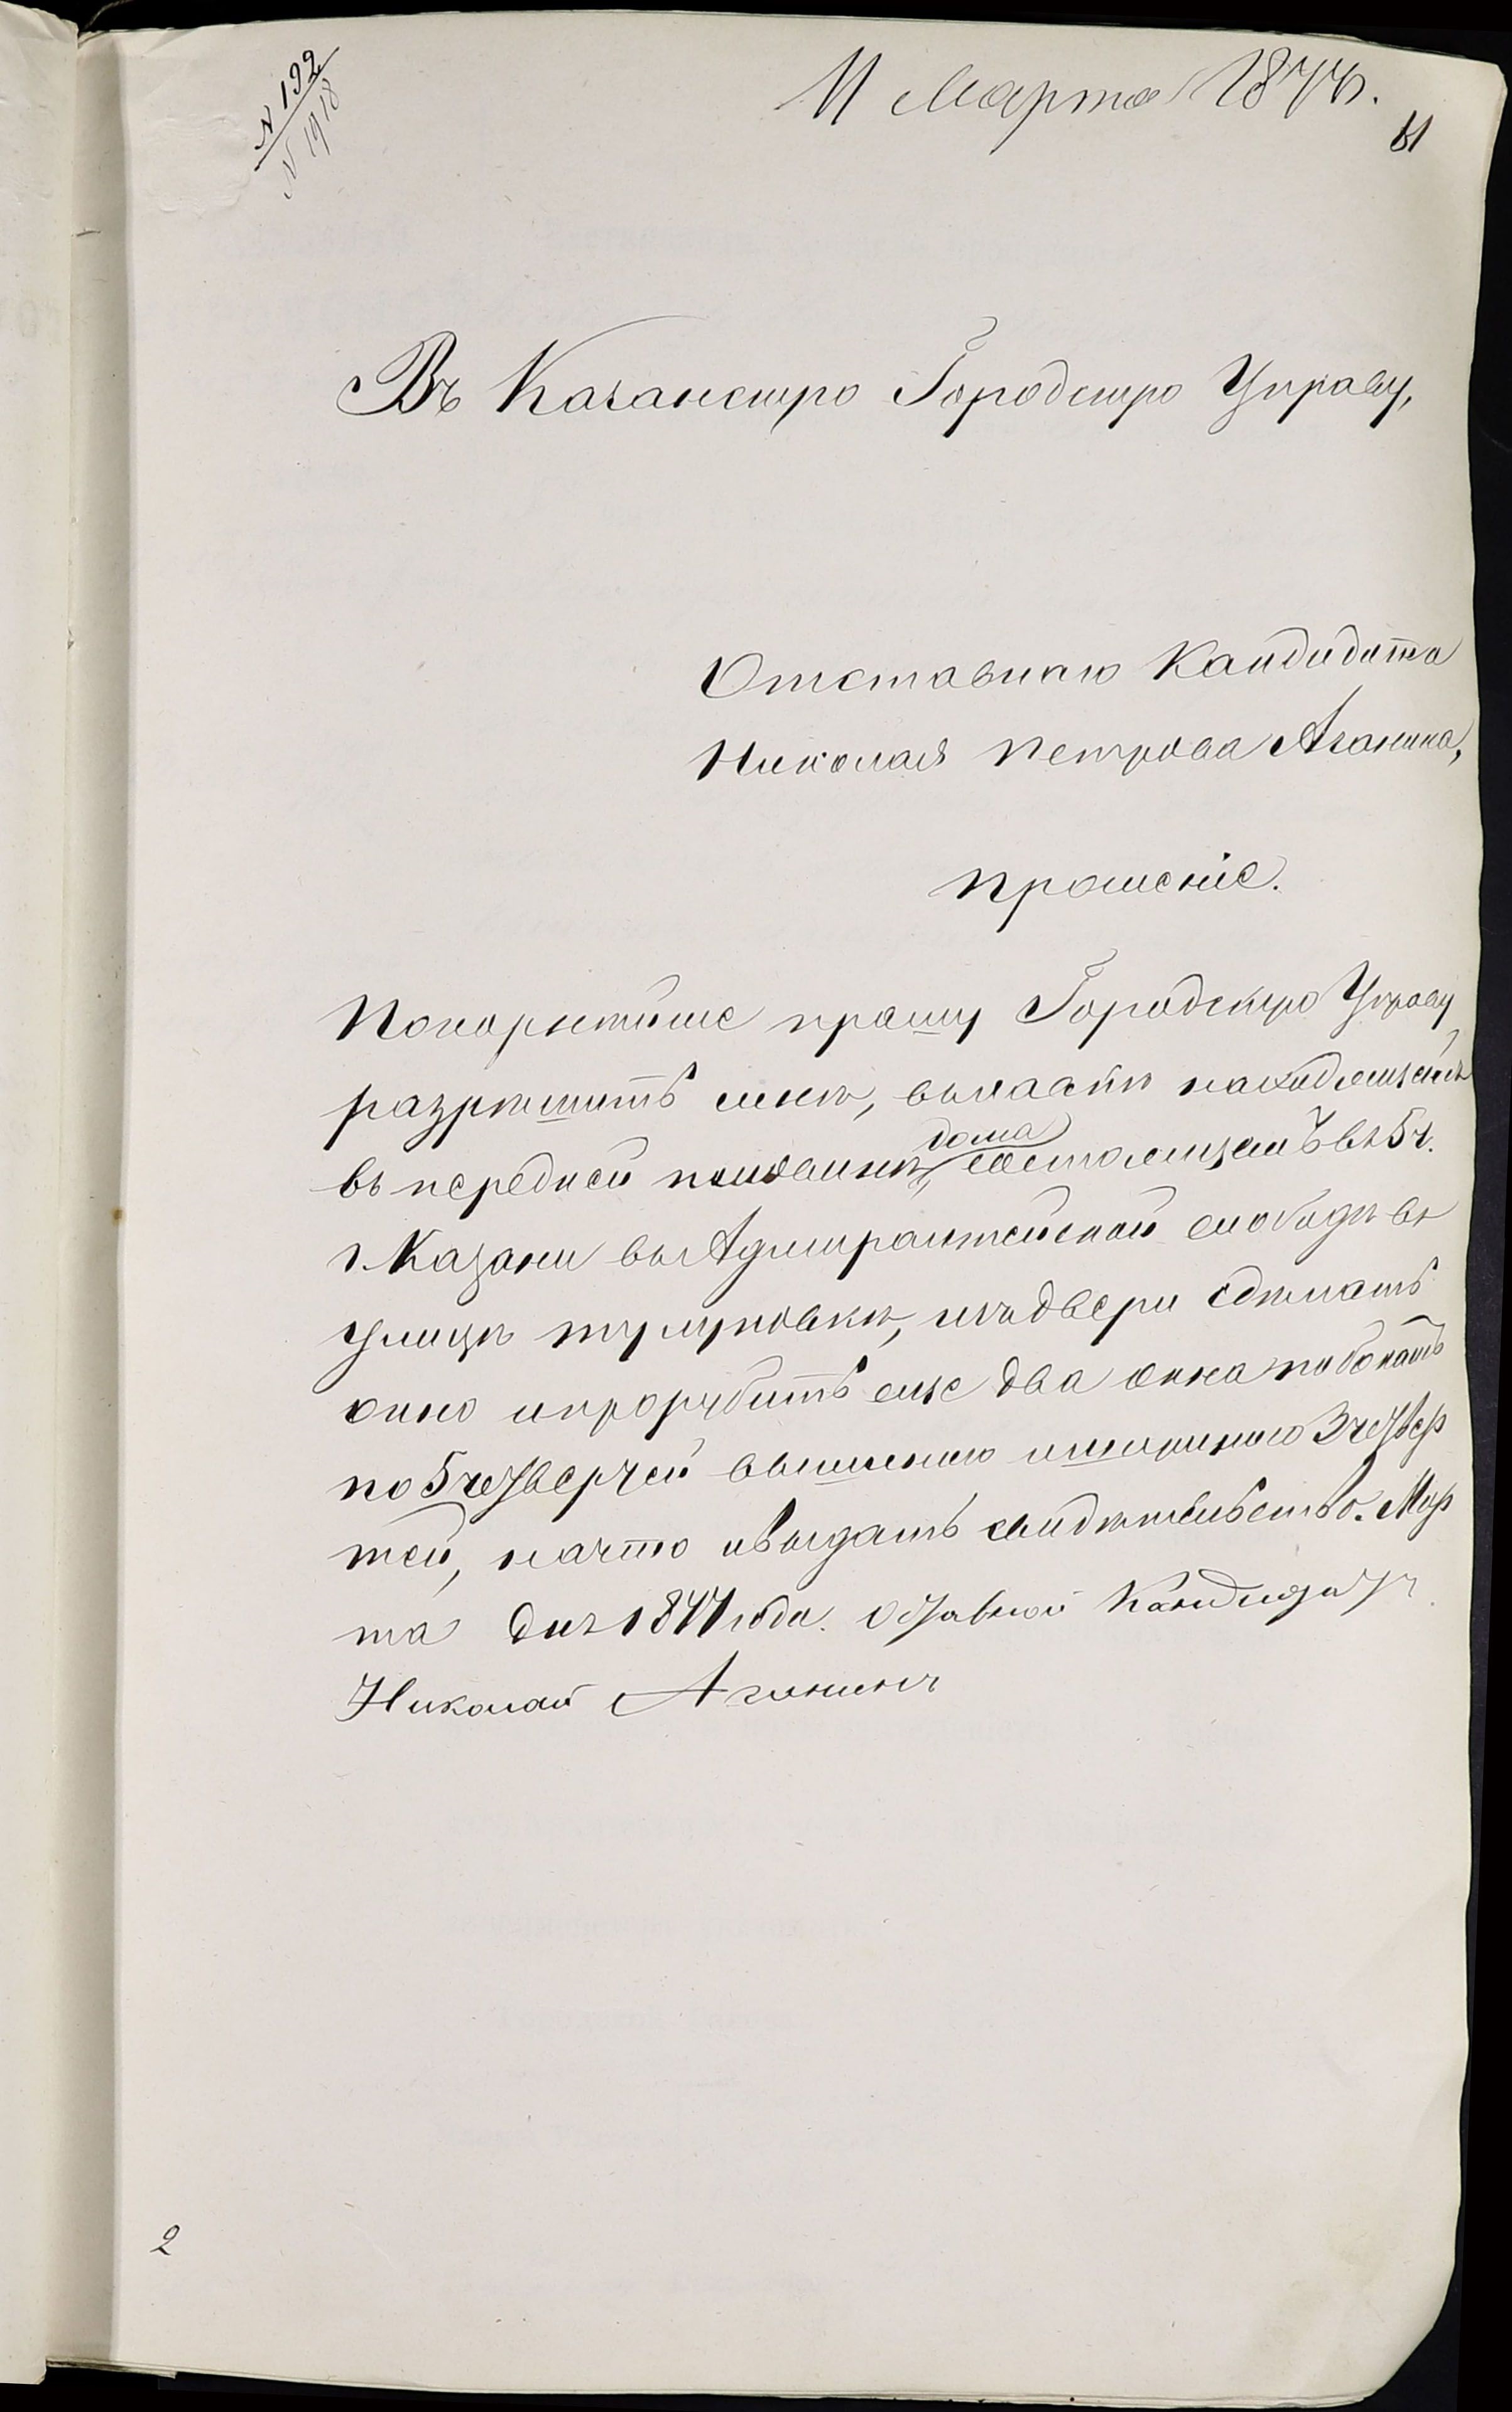 № 192
№ 1918
11 Марта 1877.
61
Въ Казанскую Городскую Управу,
Отставнаго Кандидата
Николая Петрова Аганина,
прошеніе.
Покорнѣйше прошу Городскую Управу
разрѣшить мнѣ, въ части находящейся
въ передней половинѣ, дома состоящемъ въ 5 ч.
г. Казани въ Адмиралтейской слободѣ въ
улицѣ тулуповкѣ, изъ двери сдѣлать
окно и прорубить еще два окна по бокамъ
по 5 четвертей вышиною и шириною 3 четвер
тей, на что и выдать свидѣтельство. Мар
та дня 1877 года. Отставной Кандидатъ
Николай Аганинъ
2